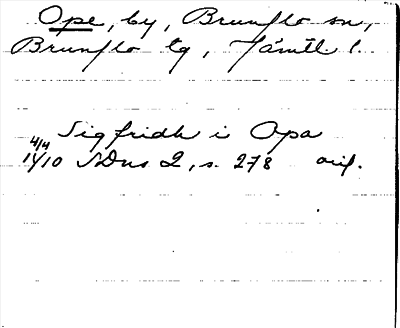 Ope, by, Brunflo sn,
Brunflo tg, Jämtl l.
Sigfridh i Opa
4/4
1410 SDns 2, s. 278 orig.